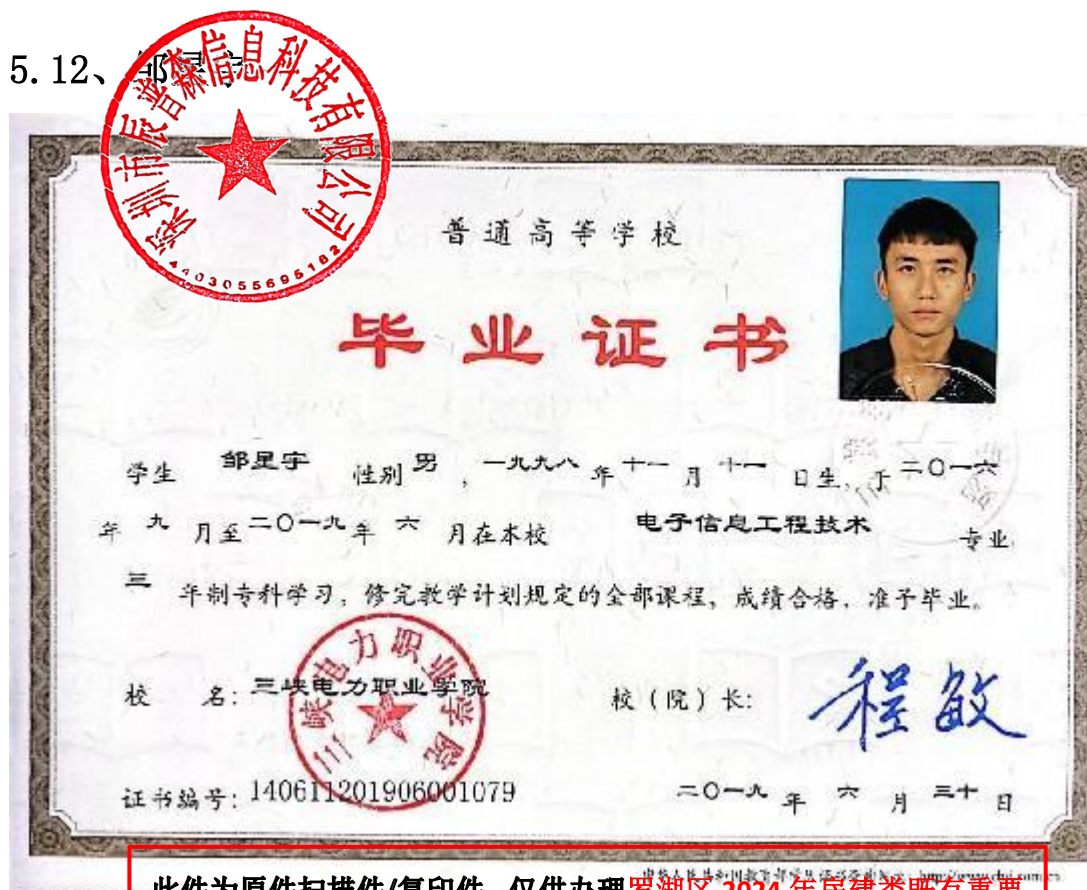 5.12、邹星宇
深圳市辰普森信息科技有限公司
4403055695182
普通高等学校
毕业证书
学生 邹星宇 性别 男 , 一九九八 年 十一 月 十一 日生, 于 二〇一六
年 九 月至 二〇一九 年 六 月在本校 电子信息工程技术 专业
三 年制专科学习, 修完教学计划规定的全部课程, 成绩合格, 准予毕业。
校 名: 三峡电力职业学院
校 (院) 长: 程敏
三峡电力职业学院
证书编号: 140611201906001079
二〇一九 年 六 月 三十 日
此件为原件扫描件/复印件, 仅供办理罗湖区 2024 年房建类所有重要